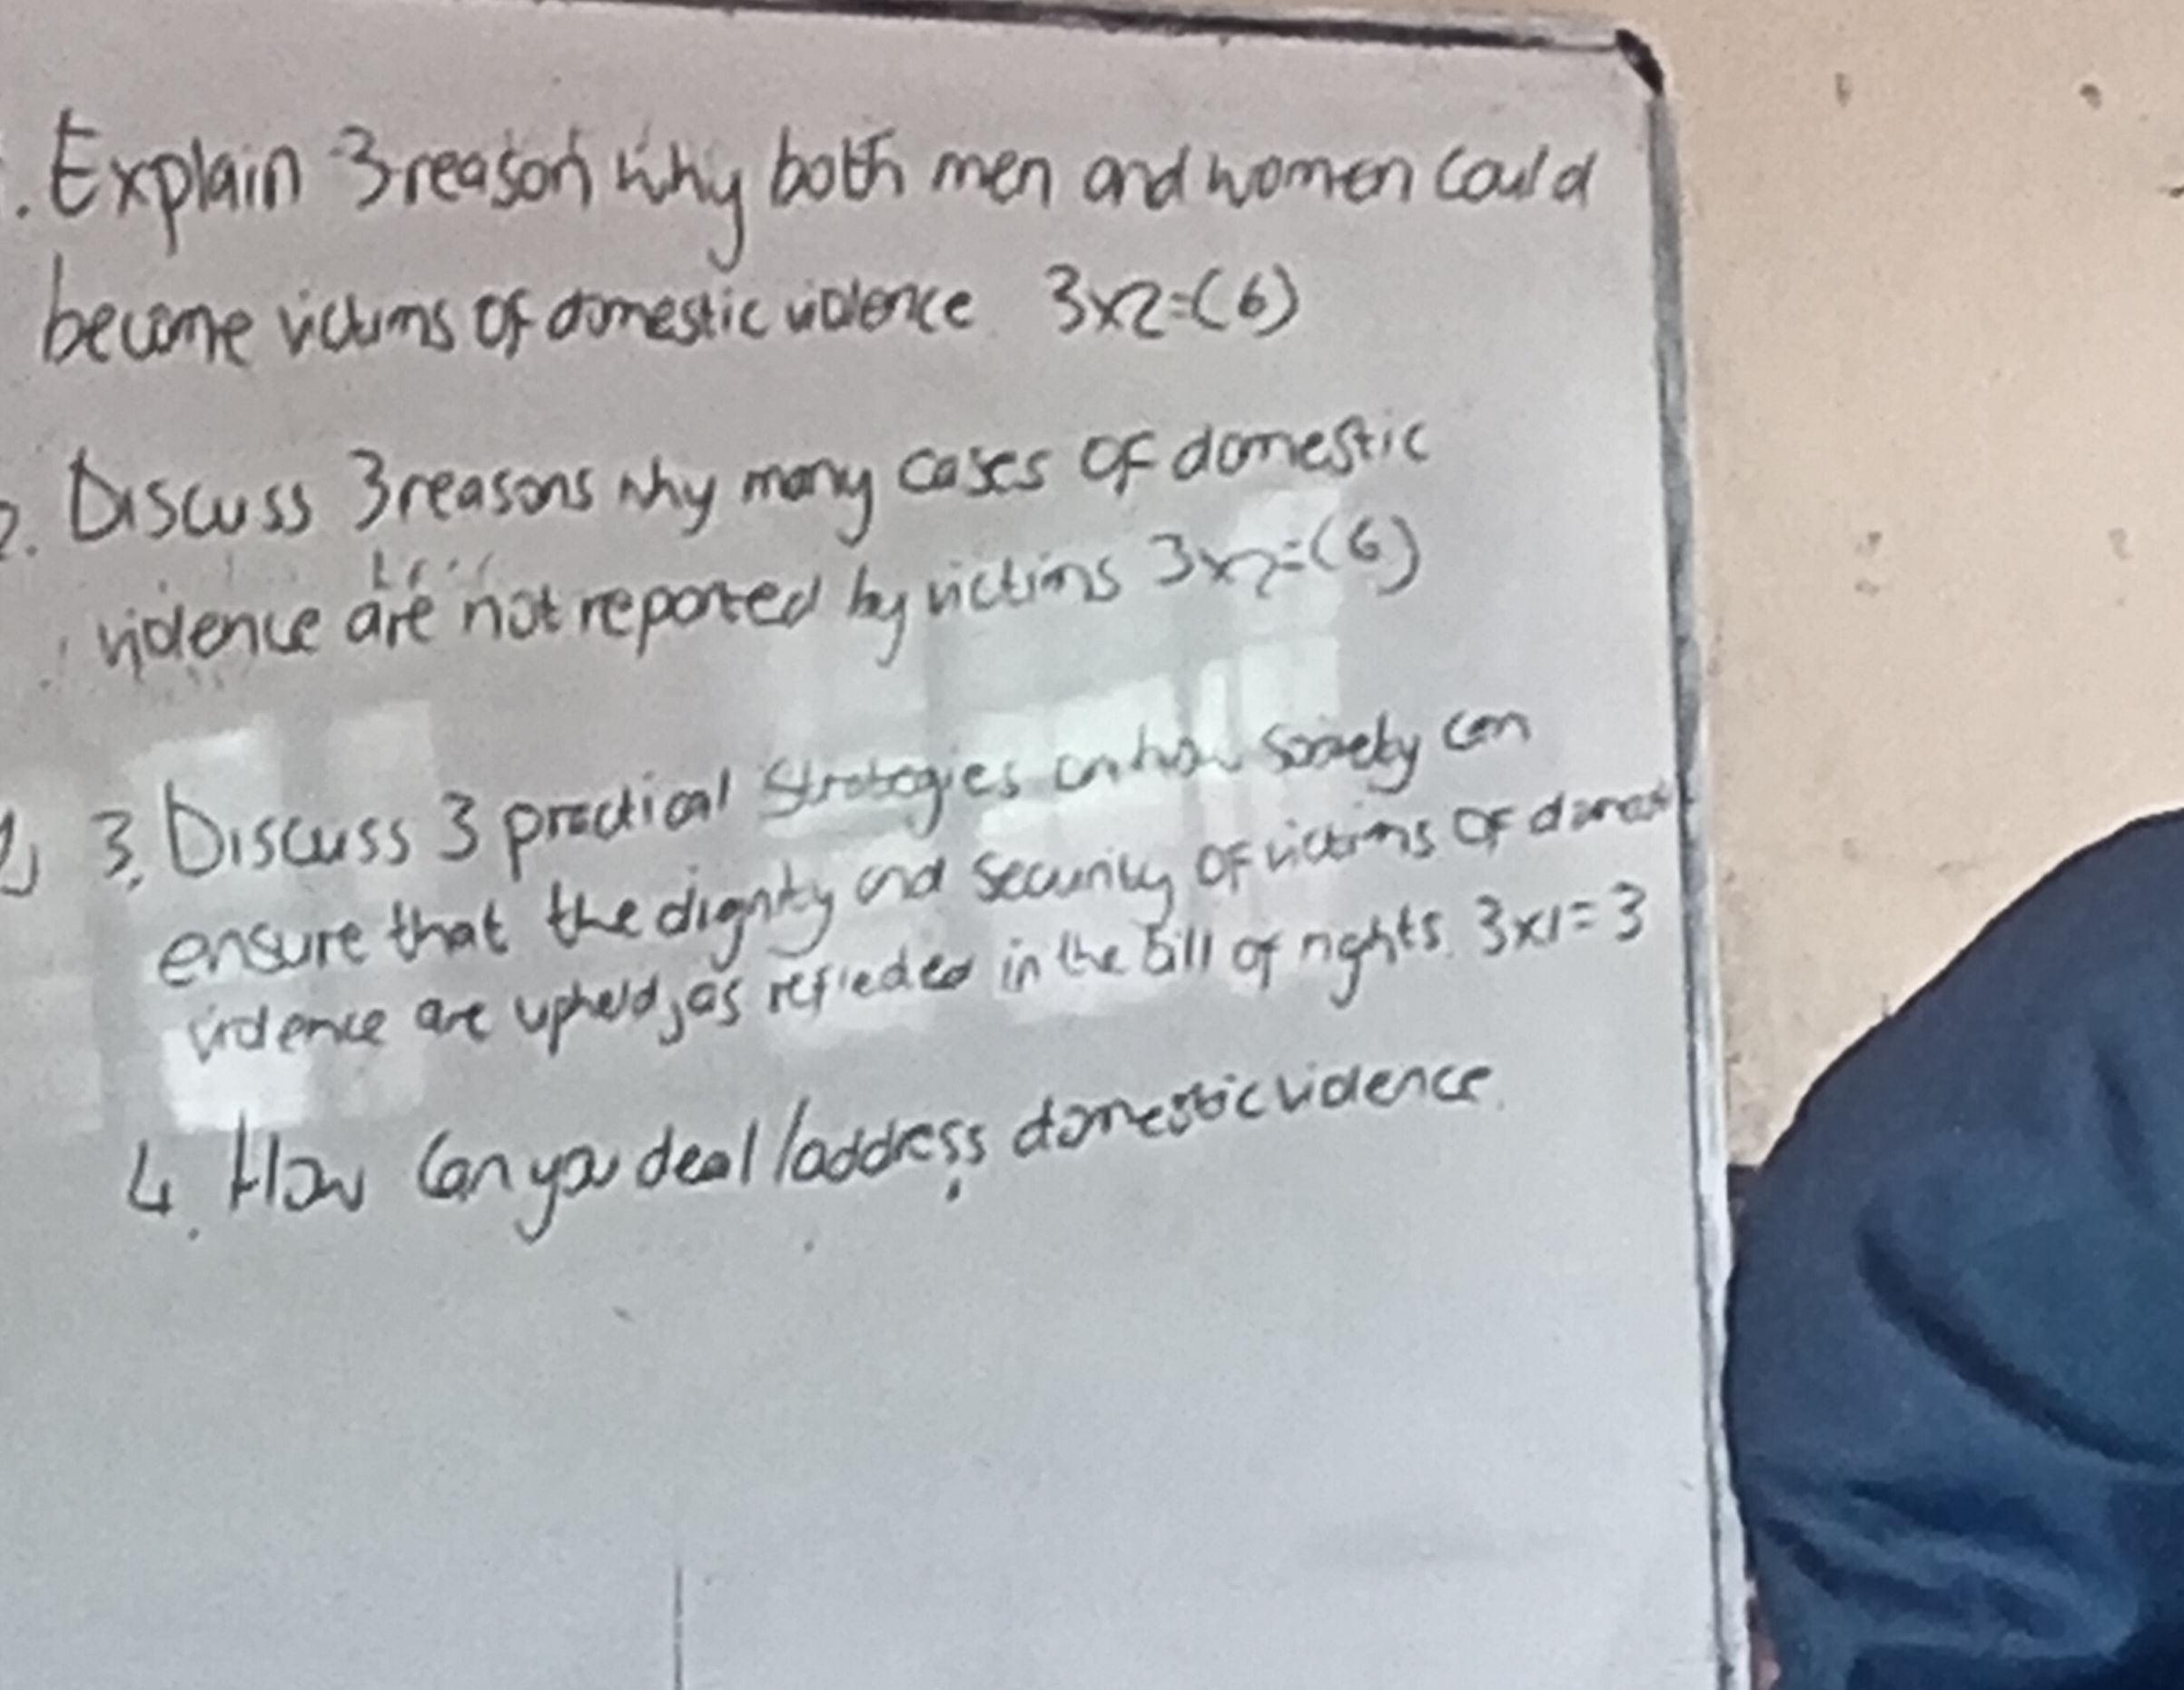 . Explain 3 reason why both men and women could
become victims of domestic violence 3x2=(6)
2. Discuss 3 reasons why many cases of domestic
violence are not reported by victims 3x2=(6)
3. Discuss 3 practical strategies on how society can
ensure that the dignity and security of victims of domest
violence are upheld, as reflected in the bill of rights. 3x1=3
4. How can you deal/address domestic violence.